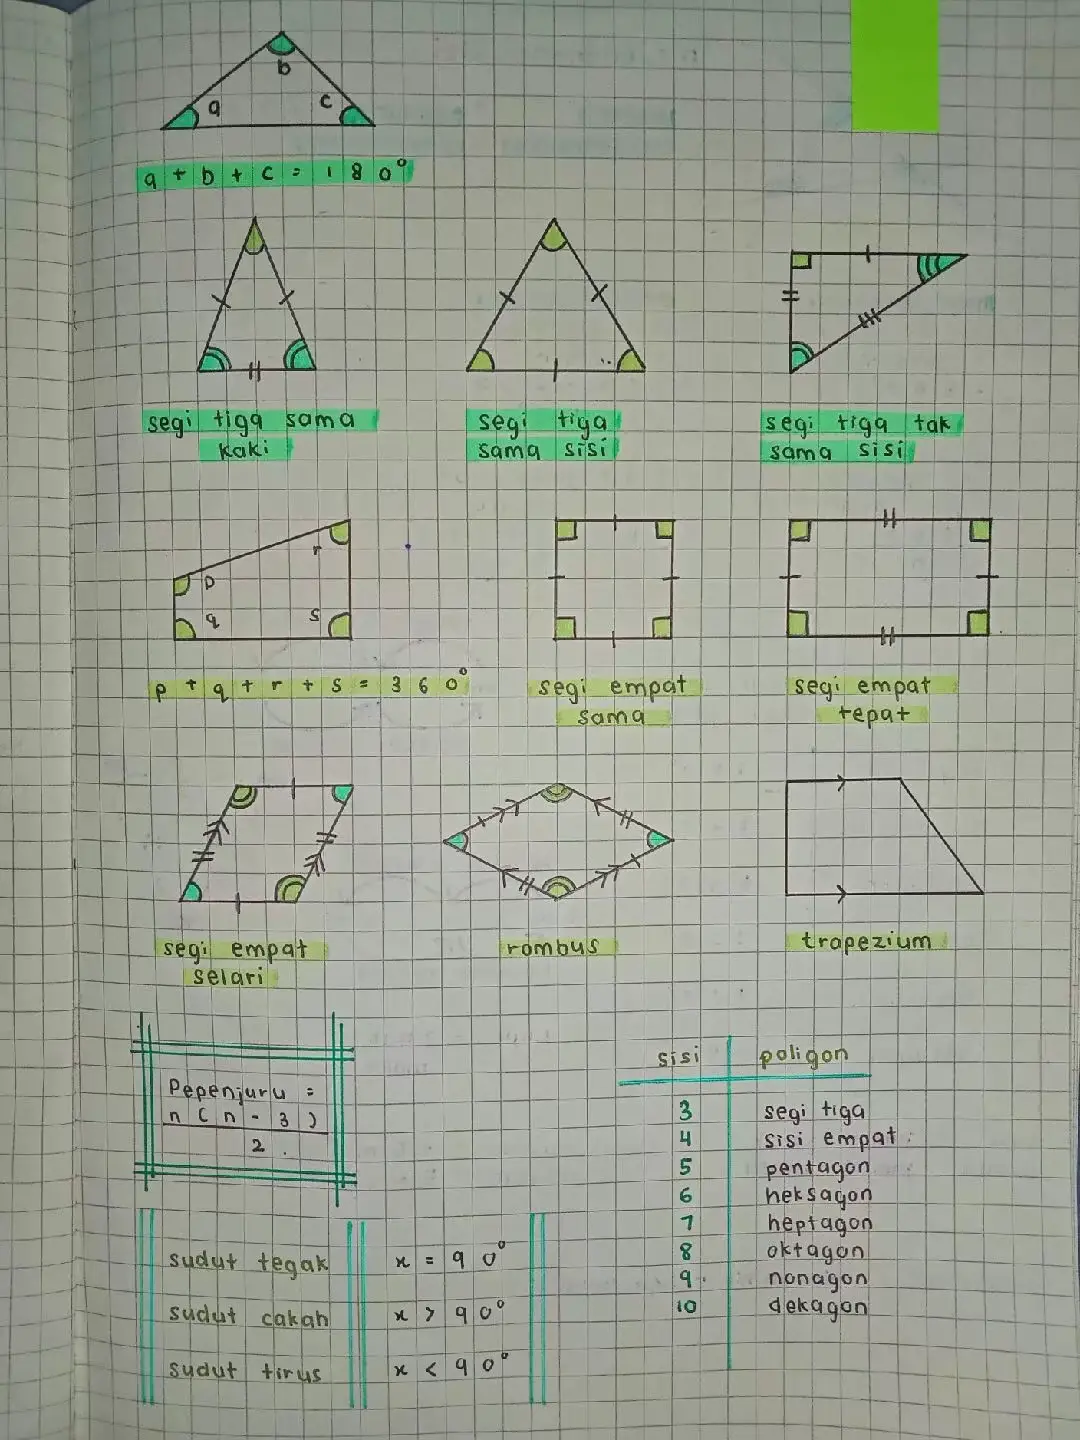 b
a
c
a + b + c = 180°
segi tiga sama
kaki
segi tiga
sama sisi
segi tiga tak
sama sisi
p
r
q
s
p + q + r + s = 360°
segi empat
sama
segi empat
tepat
segi empat
selari
rombus
trapezium
Pepenjuru =
n(n-3)
2
sisi poligon
3 segi tiga
4 sisi empat
5 pentagon
6 heksagon
7 heptagon
8 oktagon
9 nonagon
10 dekagon
sudut tegak x = 90°
sudut cakah x > 90°
sudut tirus x < 90°